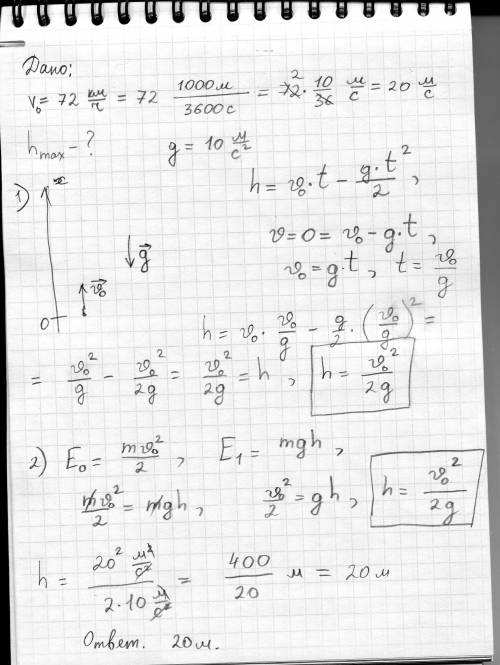 Дано:
v₀ = 72 км/ч = 72 1000м/3600с = 72² · 10/36 м/с = 20 м/с
hmax - ? g = 10 м/с²
1) x
h = v₀·t - g·t²/2 ,
g⃗
v = 0 = v₀ - g·t ,
v⃗₀
v₀ = g·t , t = v₀/g
0
h = v₀ · v₀/g - g/2 · (v₀/g)² =
= v₀²/g - v₀²/2g = v₀²/2g = h , h = v₀²/2g
2) E₀ = mv₀²/2 , E₁ = mgh ,
mv₀²/2 = mgh , v₀²/2 = gh , h = v₀²/2g
h = 20² м²/с² / 2·10 м/с² = 400/20 м = 20 м
Ответ. 20 м.